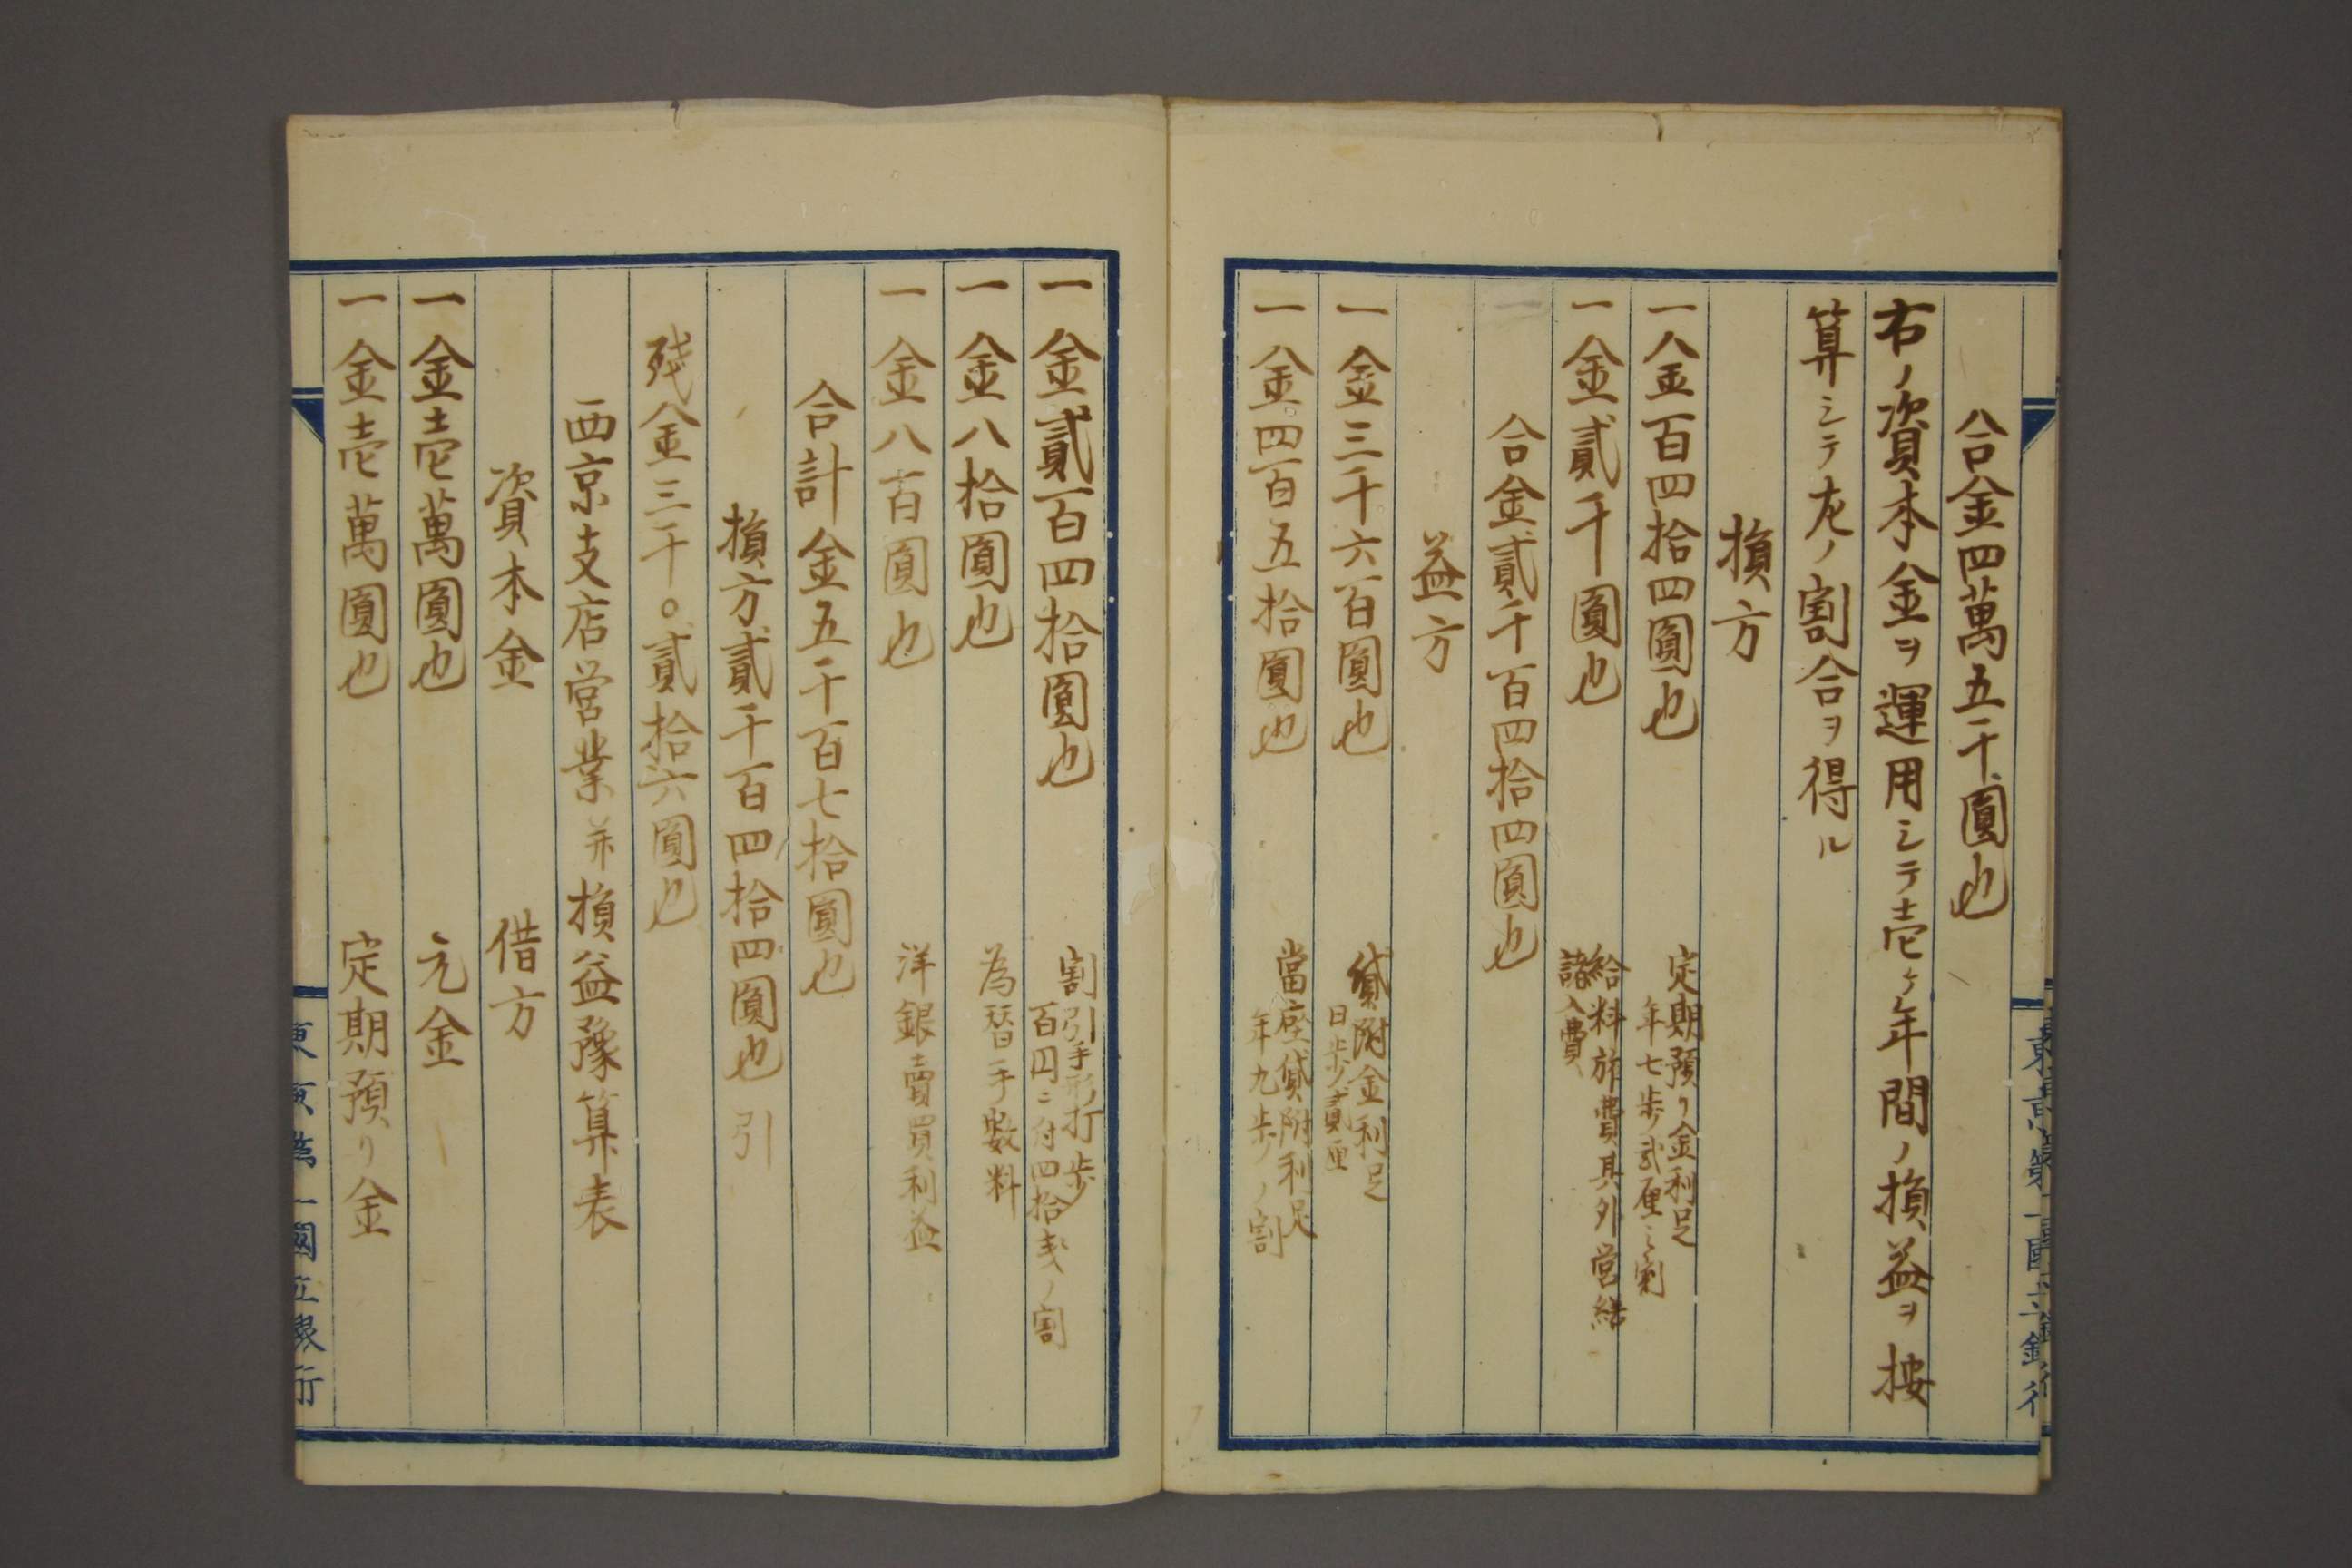 合金四萬五千圓也
右ノ資本金ヲ運用シテ壱ヶ年間ノ損益ヲ按
算シテ左ノ割合ヲ得ル
損方
一金百四拾四圓也 定期預リ金利足
年七歩弐厘之割
一金貳千圓也 給料旅費其外営繕
諸入費
合金貳千百四拾四圓也
益方
一金三千六百圓也 貸附金利足
日歩貳厘
一金四百五拾圓也 當座貸附利足
年九歩ノ割
一金貳百四拾圓也 割引手形打歩
百円ニ付四拾銭ノ割
一金八拾圓也 為替手數料
一金八百圓也 洋銀賣買利益
合計金五千百七拾圓也
損方貳千百四拾四圓也引
残金三千〇貳拾六圓也
西京支店営業并損益豫算表
資本金 借方
一金壱萬圓也 元金
一金壱萬圓也 定期預リ金
東京第一國立銀行
東京第一國立銀行